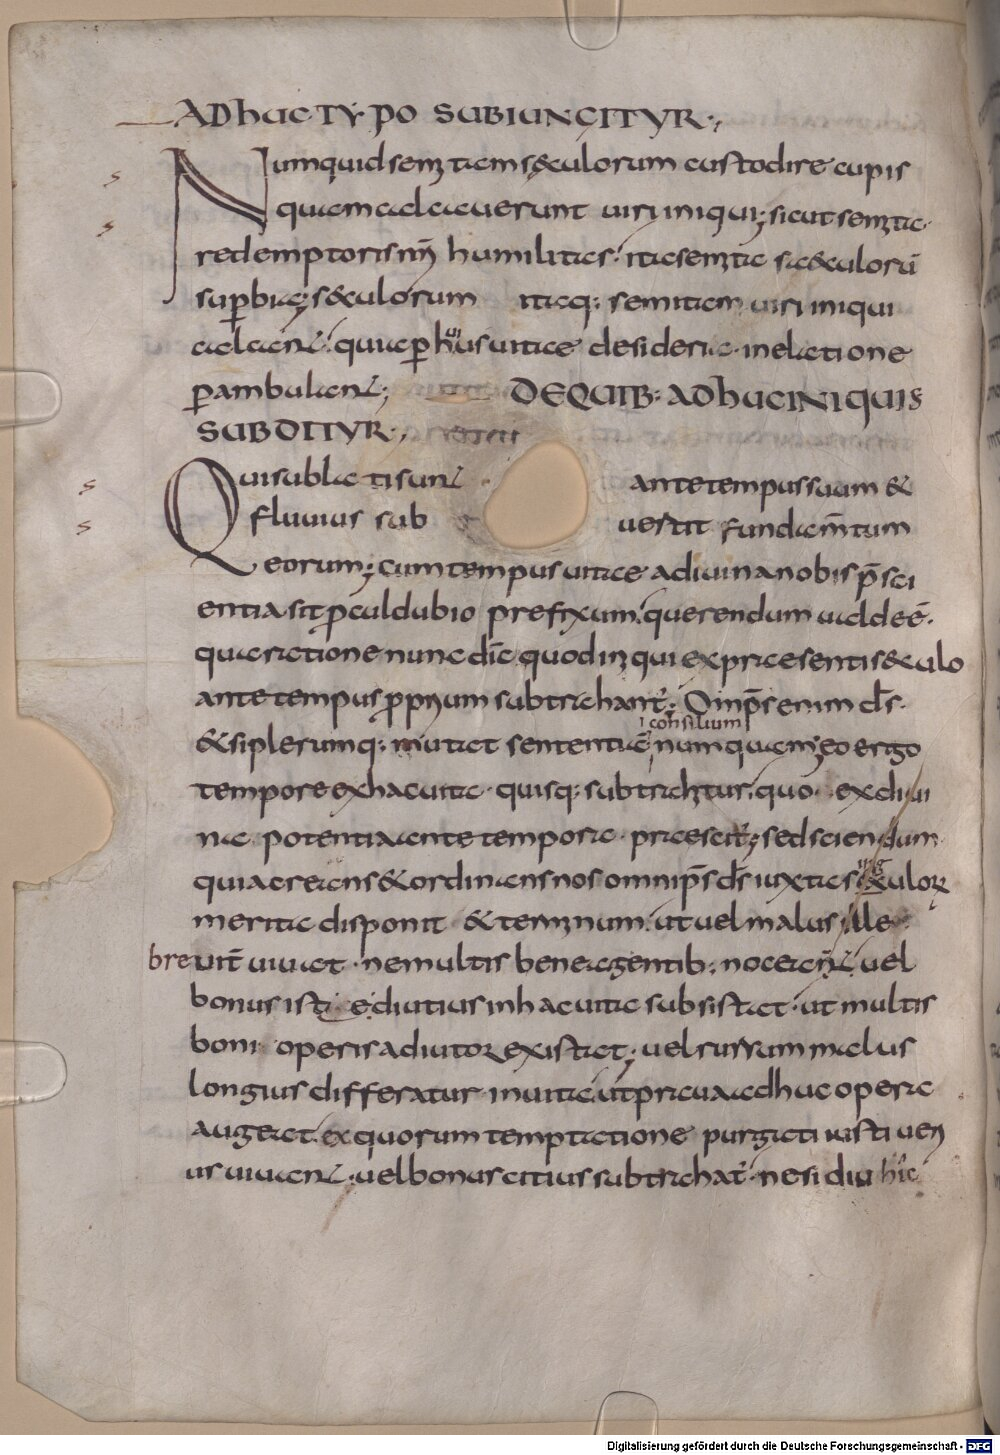 ADhUCTYPO SUBIUNGITUR·,
Numquid semitam sęculorum custodire cupis
quam calcauerunt uiri iniqui; sicut semita
redemptoris nri humilitas· ita semita sęculorū
supbia; sęculorum itaq: semitam uiri iniqui
calcant· quia p huius uitae desideria· in elatione
pambulant; DEQUIB: ADhUC INIQUIS
SUBDITUR·,
Qui sublati sunt ante tempus suum &
fluuius sub uertit fundam̄tum
eorum; cum tempus uitae a diuina nobis p̄sci
entia sit pculdubio prefixum· querendum ualde ē·
qua ratione nunc dīc quod iniqui ex praesenti sęculo
ante tempus p̱prium subtrahant̄; Omp̄s enim d̄s·
&si plerumq: mutat sententiā
consilium
numquam; eo ergo
tempore ex hac uita· quisq: subtrahitur· quo· ex diui
na potentia ante tempora· praescit̄; sed sciendum
quia creans & ordinans nos omnip̄s d̄s iuxta singulor
merita disponit & terminum· ut uel malus ille
breuit̄ uiuat· ne multis bene agentib: noceat· uel
bonus iste diutius in hac uita subsistat· ut multis
boni operis adiutor existat; uel rursum malus
longius differatur in uita· ut praua adhuc opera
augeat· ex quorum temptatione purgati iusti ueri
us uiuant· uel bonus citius subtrahat̄· ne si diu hic